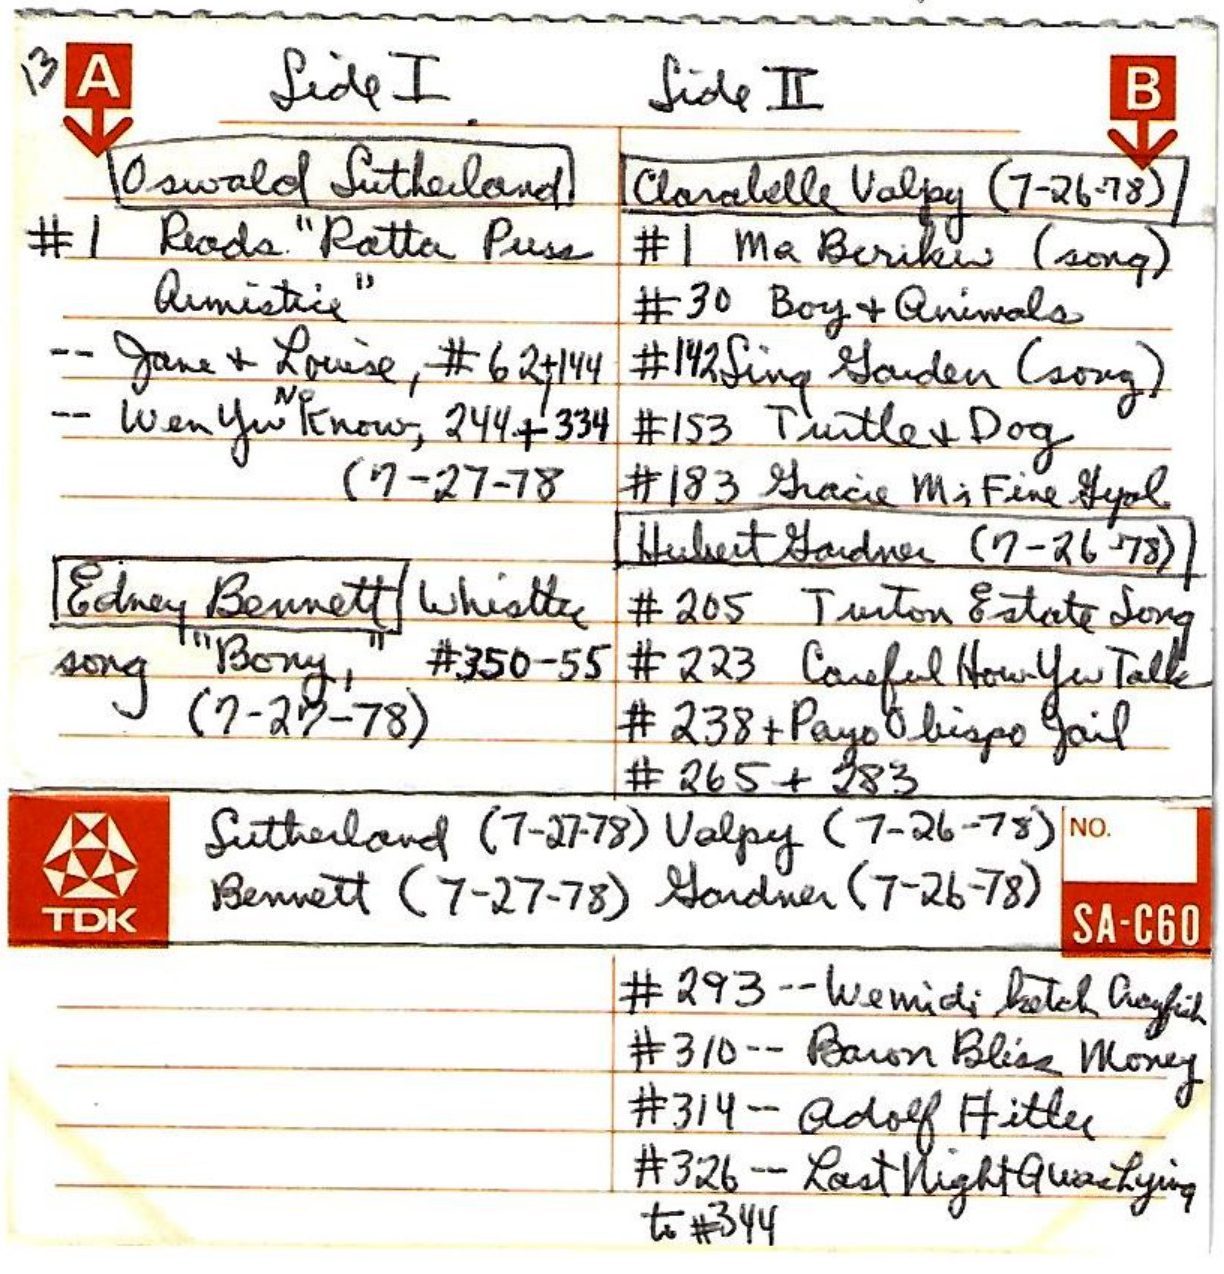 13
A
Side I
Oswald Sutherland
#1 Reads "Ratta Puss
Armistice"
-- Jane + Louise, #62+144
-- Wen Yu No Know, 244+334
(7-27-78
Edney Bennett Whistle
song "Bony," #350-55
(7-27-78)
Side II
B
Clarabelle Valpy (7-26-78)
#1 Ma Beriker (song)
#30 Boy + Animals
#142 Sing Garden (song)
#153 Turtle + Dog
#183 Gracie Mi Fine Gyal
Hubert Gardner (7-26-78)
#205 Turton Estate Song
#223 Careful How Yu Talk
#238 + Payo Obispo Jail
#265 + 283
TDK
Sutherland (7-27-78) Valpy (7-26-78)
Bennett (7-27-78) Gardner (7-26-78)
NO.
SA-C60
#293 -- We mi di ketch Crayfish
#310 -- Baron Bliss Money
#314 -- Adolf Hitler
#326 -- Last Night A was Lying
to #344